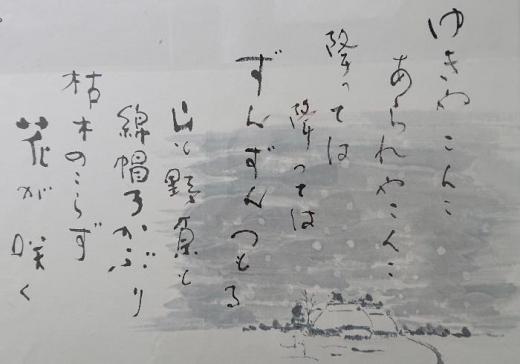 ゆきやこんこ
あられやこんこ
降っては
降っては
ずんずんつもる
山も野原も
綿帽子かぶり
枯木のこらず
花が咲く